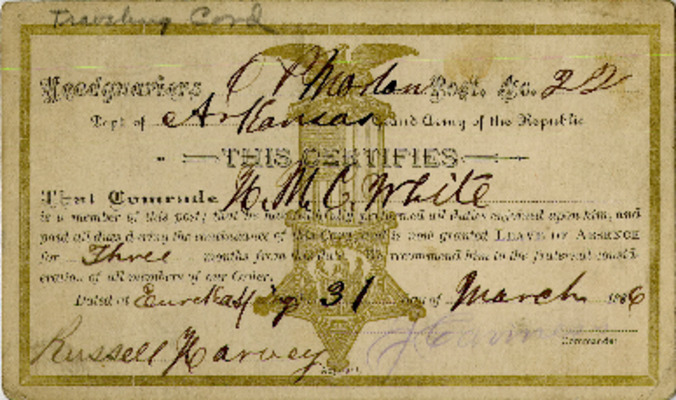 Traveling Card
Headquarters O P Morton Post. No. 22
Dept of Arkansas, Grand Army of the Republic
THIS CERTIFIES
That Comrade H. M. C. White
is a member of this post; that he has faithfully performed all duties enjoined upon him, and
paid all dues during the continuance of this Card, and is now granted LEAVE OF ABSENCE
for Three months from this date. We recommend him to the fraternal consid-
eration of all members of our Order.
Dated at Eureka Spgs 31 day of March 1886
Russell Harvey
Commander
Adjutant